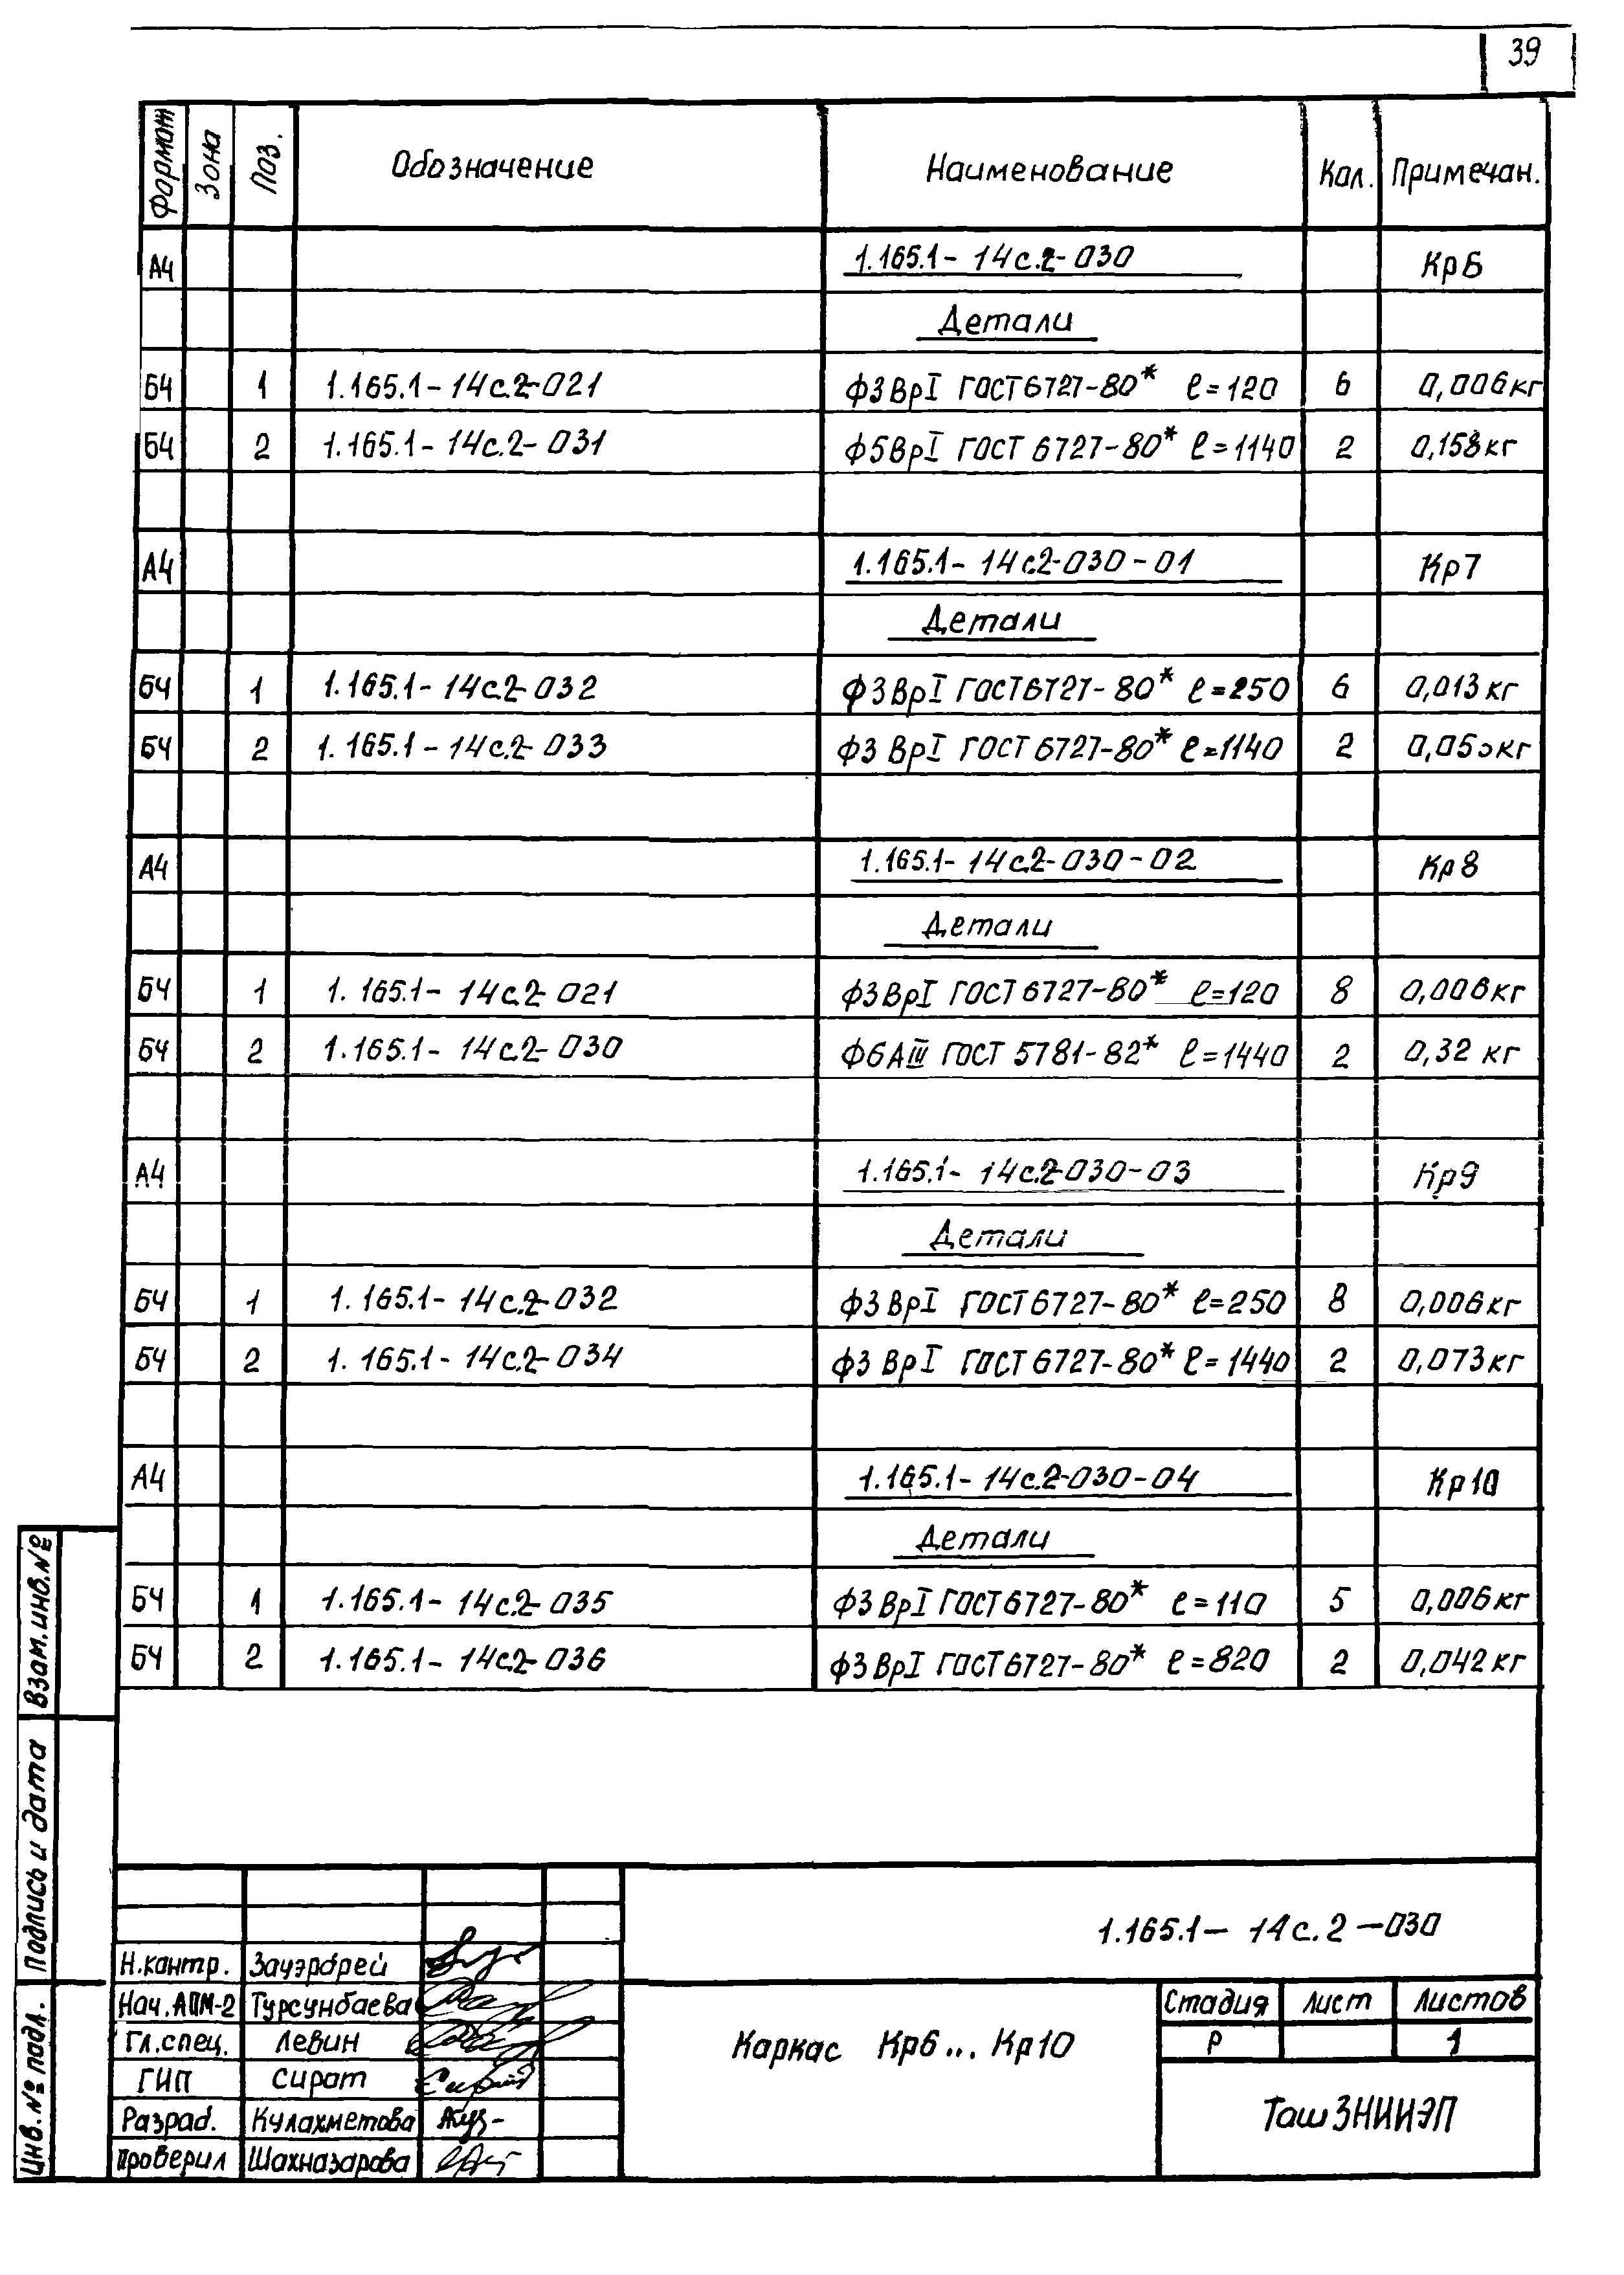 39
Формат Зона Поз. Обозначение Наименование Кол. Примечан.
А4 1.165.1-14с.2-030 Кр6
Детали
БЧ 1 1.165.1-14с.2-021 Ф3ВрI ГОСТ 6727-80* ℓ=120 6 0,006кг
БЧ 2 1.165.1-14с.2-031 Ф5ВрI ГОСТ 6727-80* ℓ=1140 2 0,158кг
А4 1.165.1-14с.2-030-01 Кр7
Детали
БЧ 1 1.165.1-14с.2-032 Ф3ВрI ГОСТ 6727-80* ℓ=250 6 0,013кг
БЧ 2 1.165.1-14с.2-033 Ф3 ВрI ГОСТ 6727-80* ℓ=1140 2
А4 1.165.1-14с.2-030-02 Кр8
Детали
БЧ 1 1.165.1-14с.2-021 Ф3ВрI ГОСТ 6727-80* ℓ=120 8 0,006кг
БЧ 2 1.165.1-14с.2-030 Ф6АIII ГОСТ 5781-82* ℓ=1440 2 0,32 кг
А4 1.165.1-14с.2-030-03 Кр9
Детали
БЧ 1 1.165.1-14с.2-032 Ф3ВрI ГОСТ 6727-80* ℓ=250 8 0,006кг
БЧ 2 1.165.1-14с.2-034 Ф3 ВрI ГОСТ 6727-80* ℓ=1440 2 0,073кг
А4 1.165.1-14с.2-030-04 Кр10
Детали
БЧ 1 1.165.1-14с.2-035 Ф3ВрI ГОСТ 6727-80* ℓ=110 5 0,006кг
БЧ 2 1.165.1-14с.2-036 Ф3ВрI ГОСТ 6727-80* ℓ=820 2 0,042кг
Взам.инв.№
Подпись и дата
Инв.№ подл.
1.165.1-14с.2-030
Н.контр. Зауэрфрей
Нач.АПМ-2 Турсунбаева
Гл.спец. Левин
ГИП Сират
Разраб. Кулахметова
Проверил Шахназарова
Каркас Кр6... Кр10
Стадия Лист Листов
Р 1
ТашЗНИИЭП